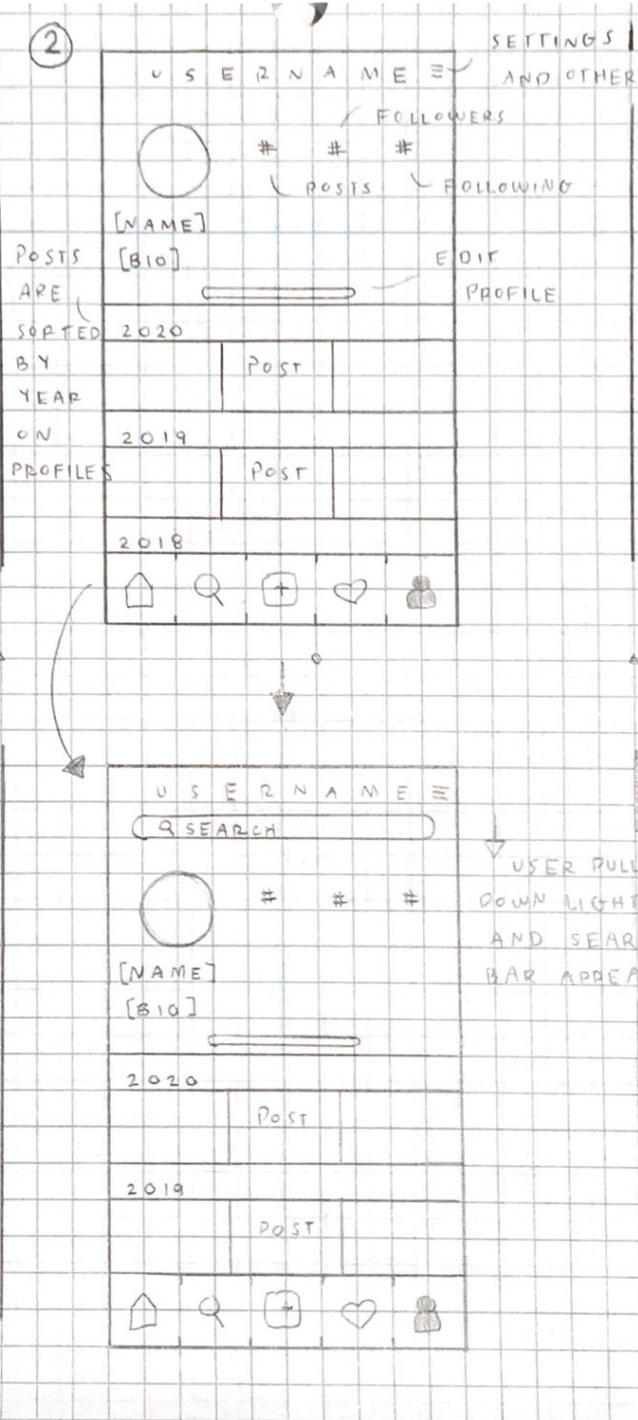 2
SETTINGS
AND OTHER
USERNAME
FOLLOWERS
# # #
POSTS
FOLLOWING
[NAME]
[BIO]
EDIT
PROFILE
POSTS
ARE
SORTED
BY
YEAR
ON
PROFILES
2020
POST
2019
POST
2018
USERNAME
SEARCH
# # #
[NAME]
[BIO]
USER PULL
DOWN LIGHT
AND SEAR
BAR APPEA
2020
POST
2019
POST